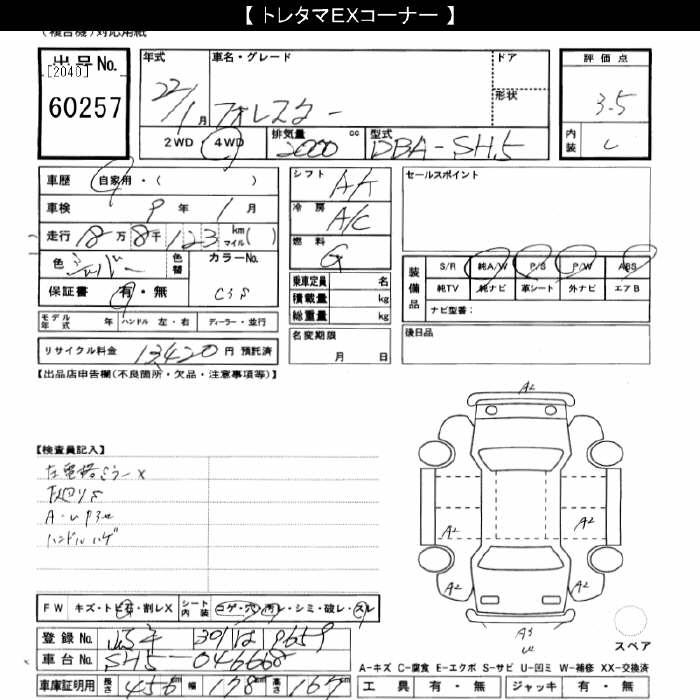 【 トレタマEXコーナー 】
(複合機)対応用紙
出品No.
[2040]
60257
年式
22/1月
車名・グレード
フォレスター
ドア
形状
2WD・4WD
排気量
2000 cc
型式
DBA-SH5
評価点
3.5
内装
車歴 自家用・( )
車検 9年 1月
走行 18万8千123 km マイル( )
色 シルバー 色替
カラーNo.
保証書 有・無
シフト AT
冷房 A/C
燃料 G
乗車定員 名
積載量 kg
総重量 kg
セールスポイント
装備品
S/R 純A/W P/S P/W ABS
純TV 純ナビ 革シート 外ナビ エアB
ナビ型番:
モデル年式 年 ハンドル 左・右 ディーラー・並行
名変期限
月 日
後日品
リサイクル料金 13420 円 預託済
【出品店申告欄(不良箇所・欠品・注意事項等)】
【検査員記入】
左電格ミラーX
下廻りS
ハンドルハゲ
A2
A2
A2
A2
A2
A3
U
スペア
FW キズ・トビ石・割レX
シート内装 コゲ・穴・汚レ・シミ・破レ・スレ
登録No.
車台No. SH5-046668
車庫証明用 長さ 456cm 幅 178cm 高さ 167cm
A-キズ C-腐食 E-エクボ S-サビ U-凹ミ W-補修 XX-交換済
工具 有・無 ジャッキ 有・無